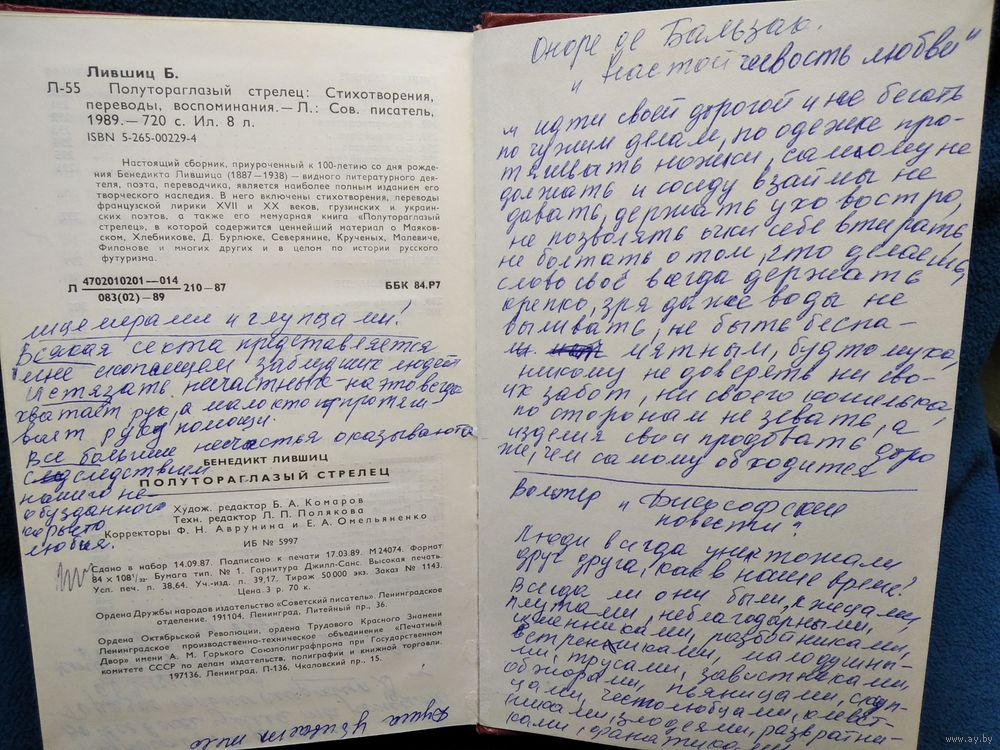 Лившиц Б.
Л-55 Полутораглазый стрелец: Стихотворения,
переводы, воспоминания.— Л.: Сов. писатель,
1989.— 720 с. Ил. 8 л.
ISBN 5-265-00229-4
Настоящий сборник, приуроченный к 100-летию со дня рожде-
ния Бенедикта Лившица (1887—1938) — видного литературного дея-
теля, поэта, переводчика, является наиболее полным изданием его
творческого наследия. В него включены стихотворения, переводы
французской лирики XVII и XX веков, грузинских и украин-
ских поэтов, а также его мемуарная книга «Полутораглазый
стрелец», в которой содержится ценнейший материал о Маяков-
ском, Хлебникове, Д. Бурлюке, Северянине, Крученых, Малевиче,
Филонове и многих других и в целом по истории русского
футуризма.
Л 4702010201—014 210-87 ББК 84.Р7
083(02)-89
лицемерами и глупцами!
Всякая секта представляется
мне скопищем заблудших людей
Истязать несчастных - на это всегда
хватает рук, а мало кто протяги-
вает руку помощи.
Все большие несчастья оказываются
следствием
нашего не-
обузданного
корысто
любия.
БЕНЕДИКТ ЛИВШИЦ
ПОЛУТОРАГЛАЗЫЙ СТРЕЛЕЦ
Худож. редактор Б. А. Комаров
Техн. редактор Л. П. Полякова
Корректоры Ф. Н. Аврунина и Е. А. Омельяненко
ИБ № 5997
Сдано в набор 14.09.87. Подписано к печати 17.03.89. М 24074. Формат
84 × 108 1/32. Бумага тип. № 1. Гарнитура Джилл-Санс. Высокая печать.
Усл. печ. л. 38,64. Уч.-изд. л. 39,17. Тираж 50 000 экз. Заказ № 1143.
Цена 3 р. 70 к.
Ордена Дружбы народов издательство «Советский писатель». Ленинградское
отделение. 191104, Ленинград, Литейный пр., 36.
Ордена Октябрьской Революции, ордена Трудового Красного Знамени
Ленинградское производственно-техническое объединение «Печатный
Двор» имени А. М. Горького Союзполиграфпрома при Государственном
комитете СССР по делам издательств, полиграфии и книжной торговли.
197136, Ленинград, П-136, Чкаловский пр., 15.
Душа убивает тело
Оноре де Бальзак.
"Настойчивость любви"
"идти своей дорогой и не бегать
по чужим делам, по одежке про-
тягивать ножки, самому не
должать и соседу взаймы не
давать, держать ухо востро,
не позволять очки себе втирать
не болтать о том, что делаешь,
слово своё всегда держать
крепко, зря даже воды не
выливать, не быть беспа-
мятным, будто муха,
никому не доверять ни сво-
их забот, ни своего кошелька,
по сторонам не зевать, а
изделия свои продовать доро
же, чем самому обходится
Вольтер "Философские
повести"
Люди всегда уничтожали
друг друга, как в наше время?
Всегда ли они были лжецами,
плутами, неблагодарными,
изменниками, разбойниками,
ветрениками, малодушны-
ми, трусами, завистниками,
обжорами, пьяницами, скуп-
цами, честолюбцами, клевет-
никами, злодеями, развратни-
ками, фанатиками,
www.ay.by